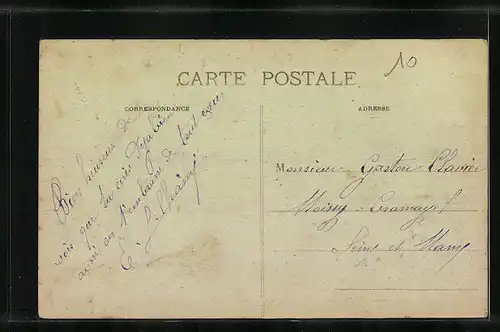 10
CARTE POSTALE
CORRESPONDANCE
ADRESSE
Bien heureux de
vois que tu es
ami, on t'embrasse de tout cœur
Monsieur Gaston Clavier
Moissy-Cramayel
Seine et Marne